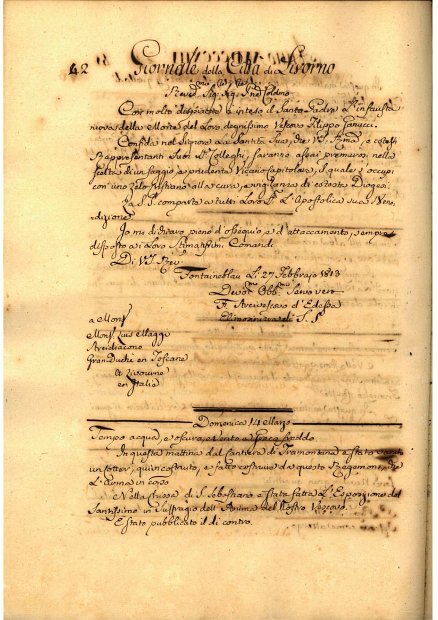 62 Giornale della Città di Livorno
Con molto dispiacere à inteso il Santo Padre l'infausta
nuova della Morte del Loro degnissimo Vescovo Filippo Ganucci.
Confida nel Signore la Santità Sua, che VS. Rma, e cotesti
Rappresentanti Suoi Colleghi, saranno assai premurosi nella
scelta di un saggio, e prudente Vicario Capitolare, il quale si occupi
con uno zelo alla cura, e vigilanza di cotesta Diogesi.
La S. S. comparte a tutti Loro l'Apostolica sua Bene
dizione.
Io mi dichiaro pieno d'ossequio, e d'attaccamento, sempre
disposto a i Loro Stimatissimi Comandi.
Di VS. Rev.
Fontainebleau Lì 27 Febbrajo 1813
Devot. Obb. Servo vero
F. Arcivescovo d'Edessa
Elimosiniere di S. S.
a Mons.
Mons. Luigi Maggi
Arcidiacono
Gran Duché en Toscane
a Livourne
en Italia
Domenica 14 Marzo
Tempo acqua, e oscura, e Vento, e poca freddo
In questa mattina dal Cantiere di Tramontana è stato varato
un Cotter, qui costruito, e fatto costruire da questo Reggimento,
L'Anno in corso
Nella Chiesa di S. Sebastiano è stata fatta L'Esposizione del
Santissimo in Suffragio dell'Anima del Nostro Vescovo.
È stato pubblicato il di contro.